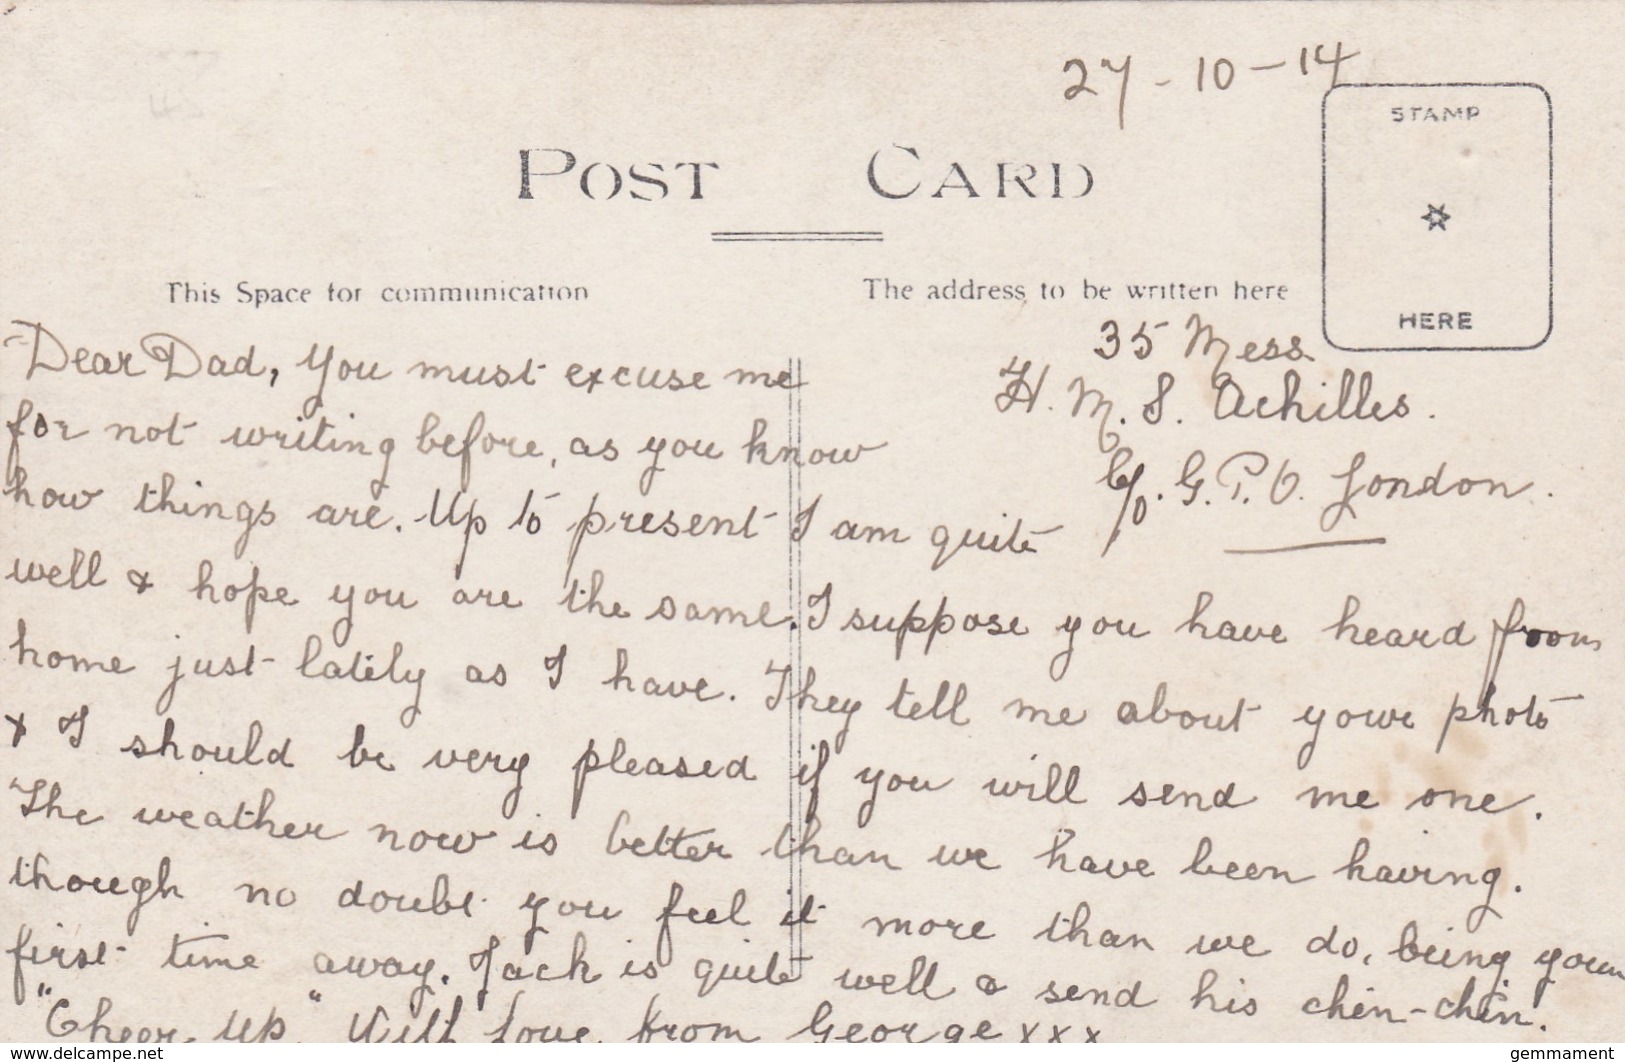 27-10-14
STAMP
HERE
POST CARD
This Space for communication
The address to be written here
35 Mess
H.M.S. Achilles.
C/o. G.P.O. London.
Dear Dad, You must excuse me
for not writing before, as you know
how things are. Up to present I am quite
well & hope you are the same. I suppose you have heard from
home just lately as I have. They tell me about your photo
& I should be very pleased if you will send me one.
The weather now is better than we have been having.
though no doubt you feel it more than we do, being your
first time away. Jack is quite well & send his chin-chin.
"Cheer Up" With Love from George xxx
www.delcampe.net
gemmament